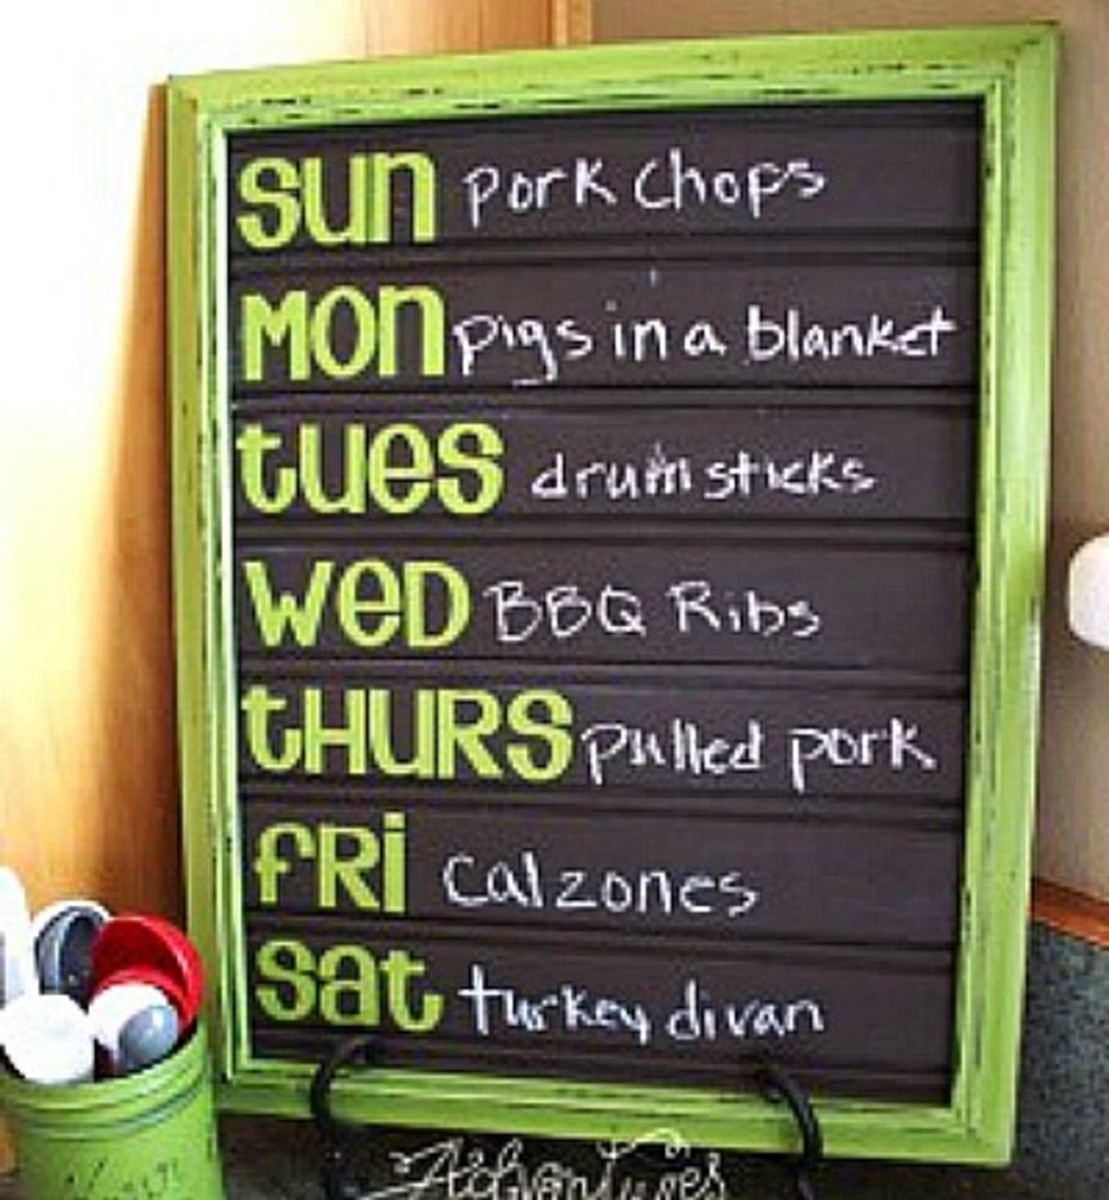 sun pork chops
Mon pigs in a blanket
tues drumsticks
weD BBQ Ribs
tHURS pulled pork
fRi Calzones
sat turkey divan
Adventures